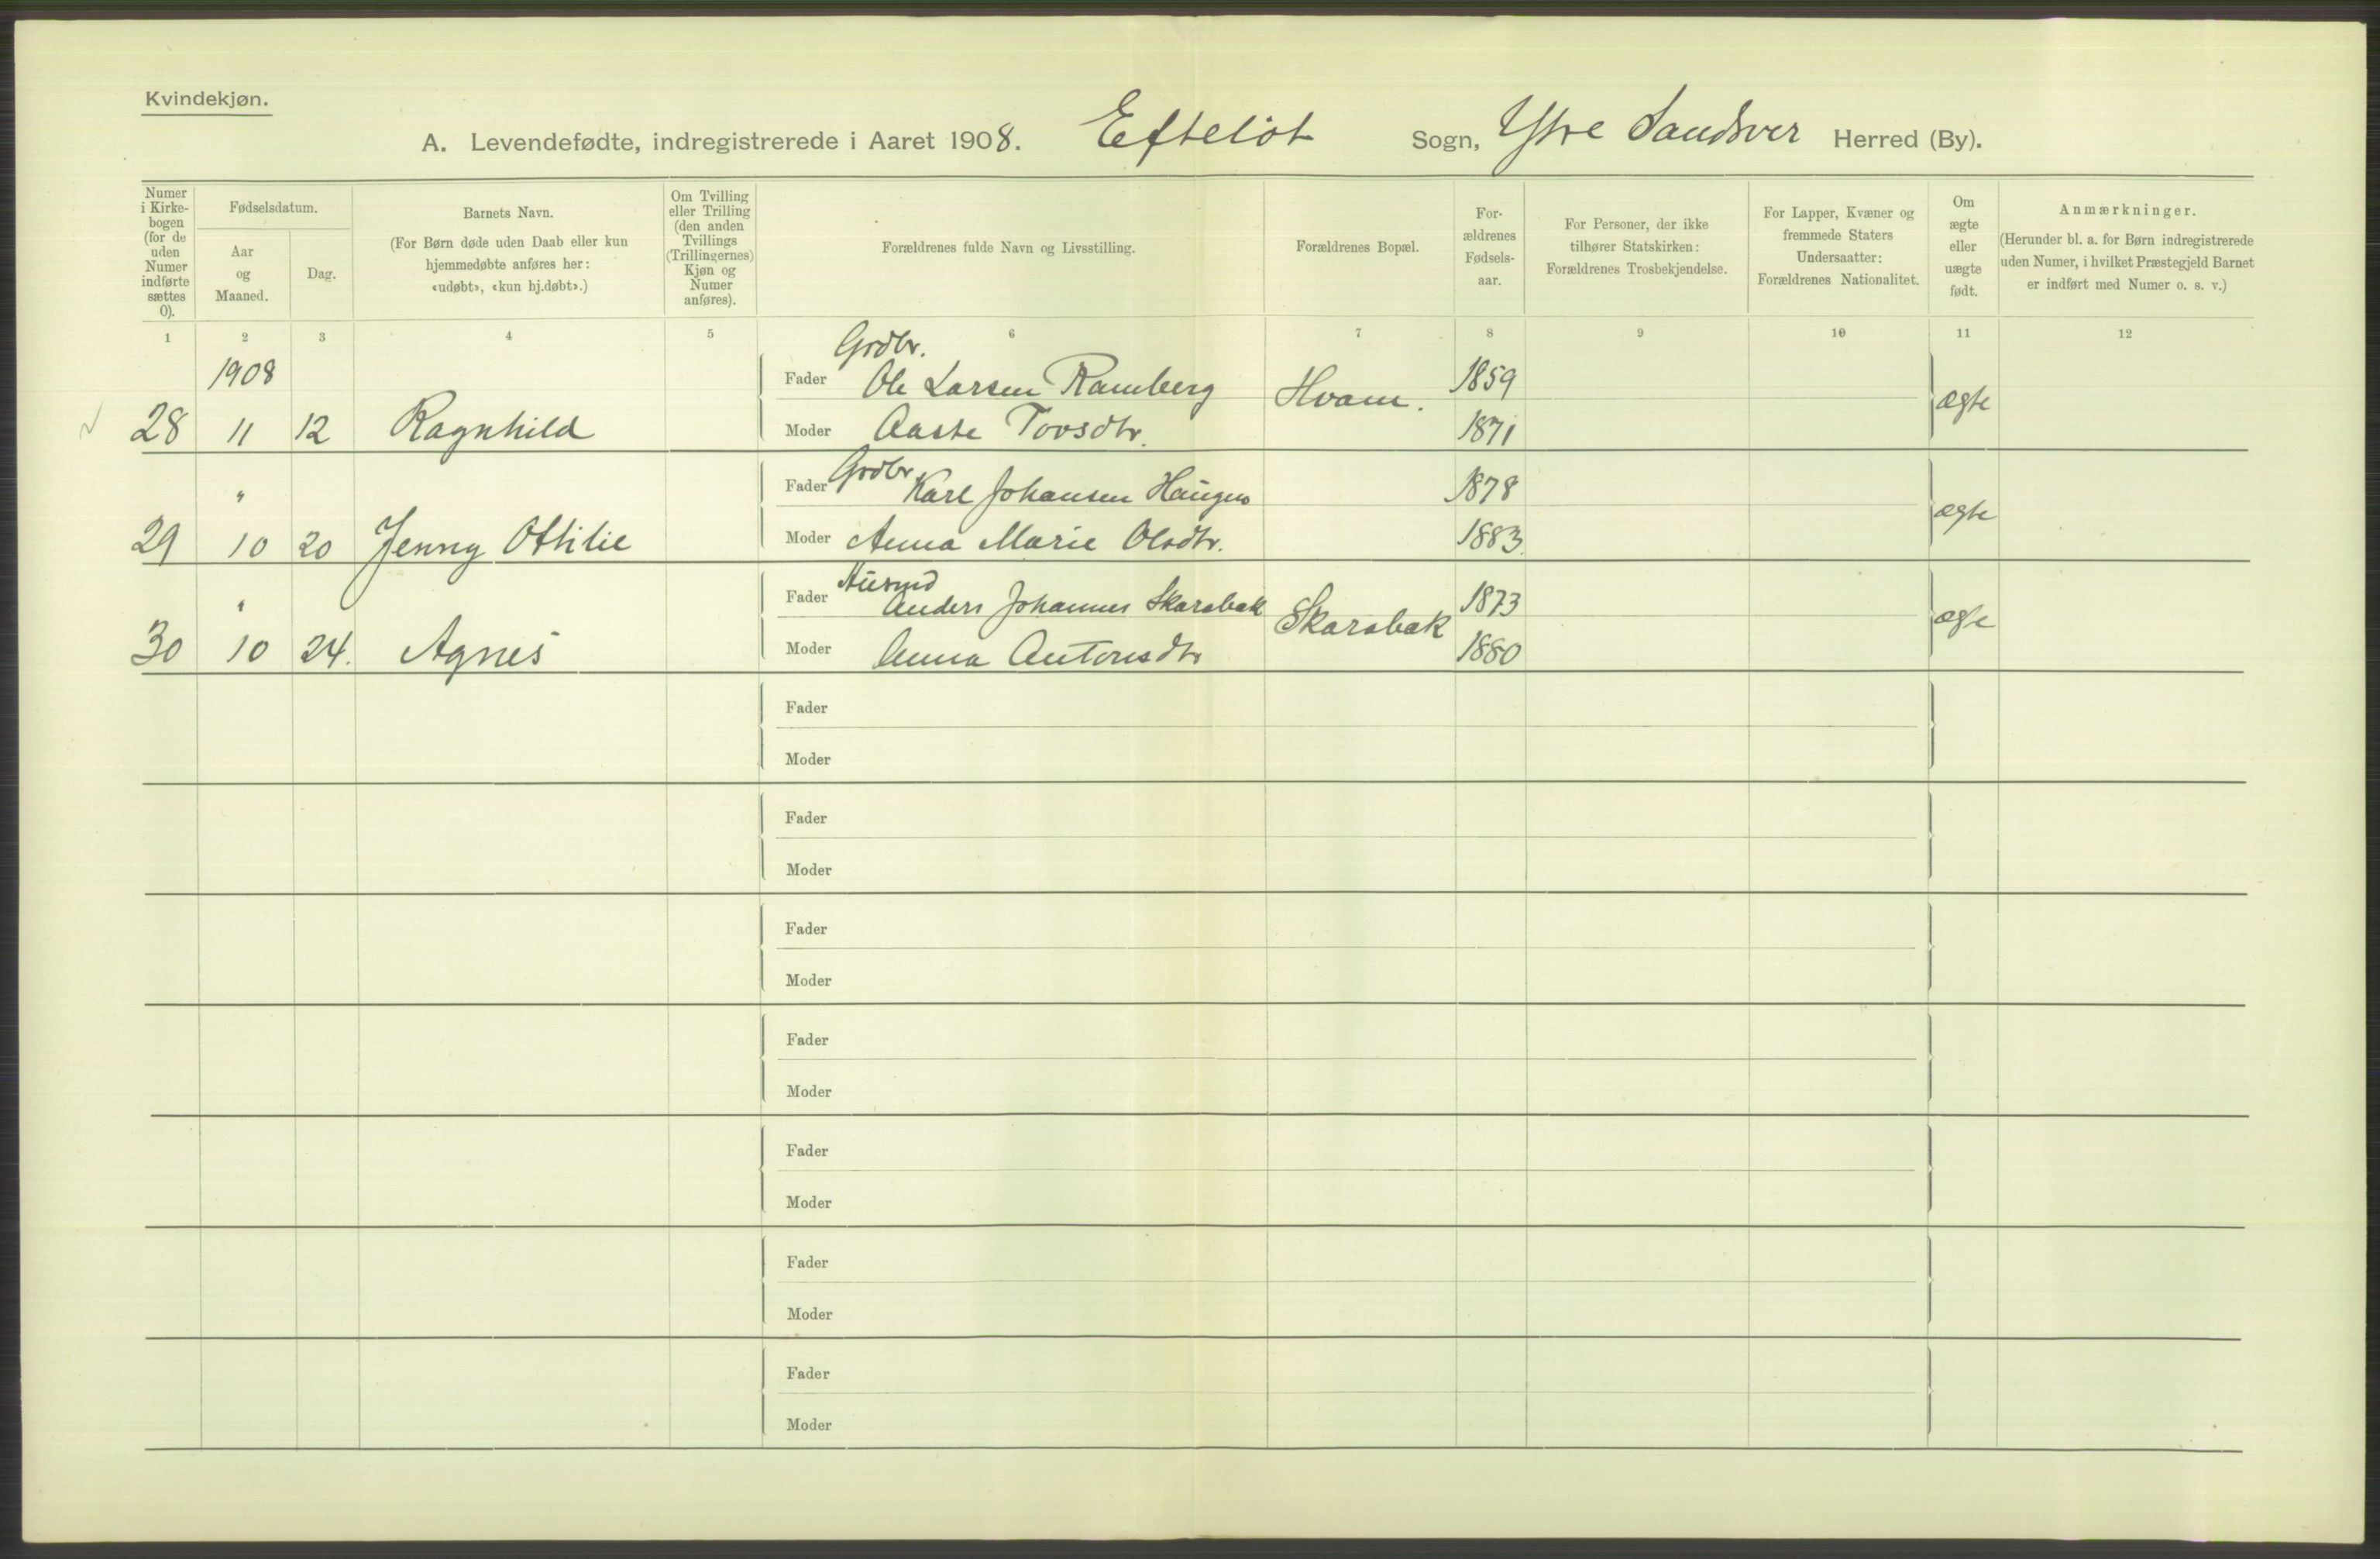 Kvindekjøn.
A. Levendefødte, indregistrerede i Aaret 1908. Efteløt Sogn, Ytre Sandsver Herred (By).
Numer i Kirkebogen (for de uden Numer indførte sættes 0).
Fødselsdatum.
Aar og Maaned.
Dag.
Barnets Navn.
(For Børn døde uden Daab eller kun
hjemmedøbte anføres her:
«udøbt», «kun hj.døbt».)
Om Tvilling
eller Trilling
(den anden
Tvillings
(Trillingernes)
Kjøn og
Numer
anføres).
Forældrenes fulde Navn og Livsstilling.
Forældrenes Bopæl.
For-
ældrenes
Fødsels-
aar.
For Personer, der ikke
tilhører Statskirken:
Forældrenes Trosbekjendelse.
For Lapper, Kvæner og
fremmede Staters
Undersaatter:
Forældrenes Nationalitet.
Om
ægte
eller
uægte
født.
Anmærkninger.
(Herunder bl. a. for Børn indregistrerede
uden Numer, i hvilket Præstegjeld Barnet
er indført med Numer o. s. v.)
1 2 3 4 5 6 7 8 9 10 11 12
Grdbr.
1908 Fader Ole Larsen Ramberg Hvam. 1859 ægte
28 11 12 Ragnhild Moder Aaste Tovsdtr. 1871
" Fader Grdbr Karl Johansen Haugen 1878 ægte
29 10 20 Jenny Othilie Moder Anna Marie Olsdtr. 1883
" Fader Husmd Anders Johannes Skarabæk Skarabæk 1873 ægte
30 10 24. Agnes Moder Anna Antonsdtr 1880
Fader
Moder
Fader
Moder
Fader
Moder
Fader
Moder
Fader
Moder
Fader
Moder
Fader
Moder